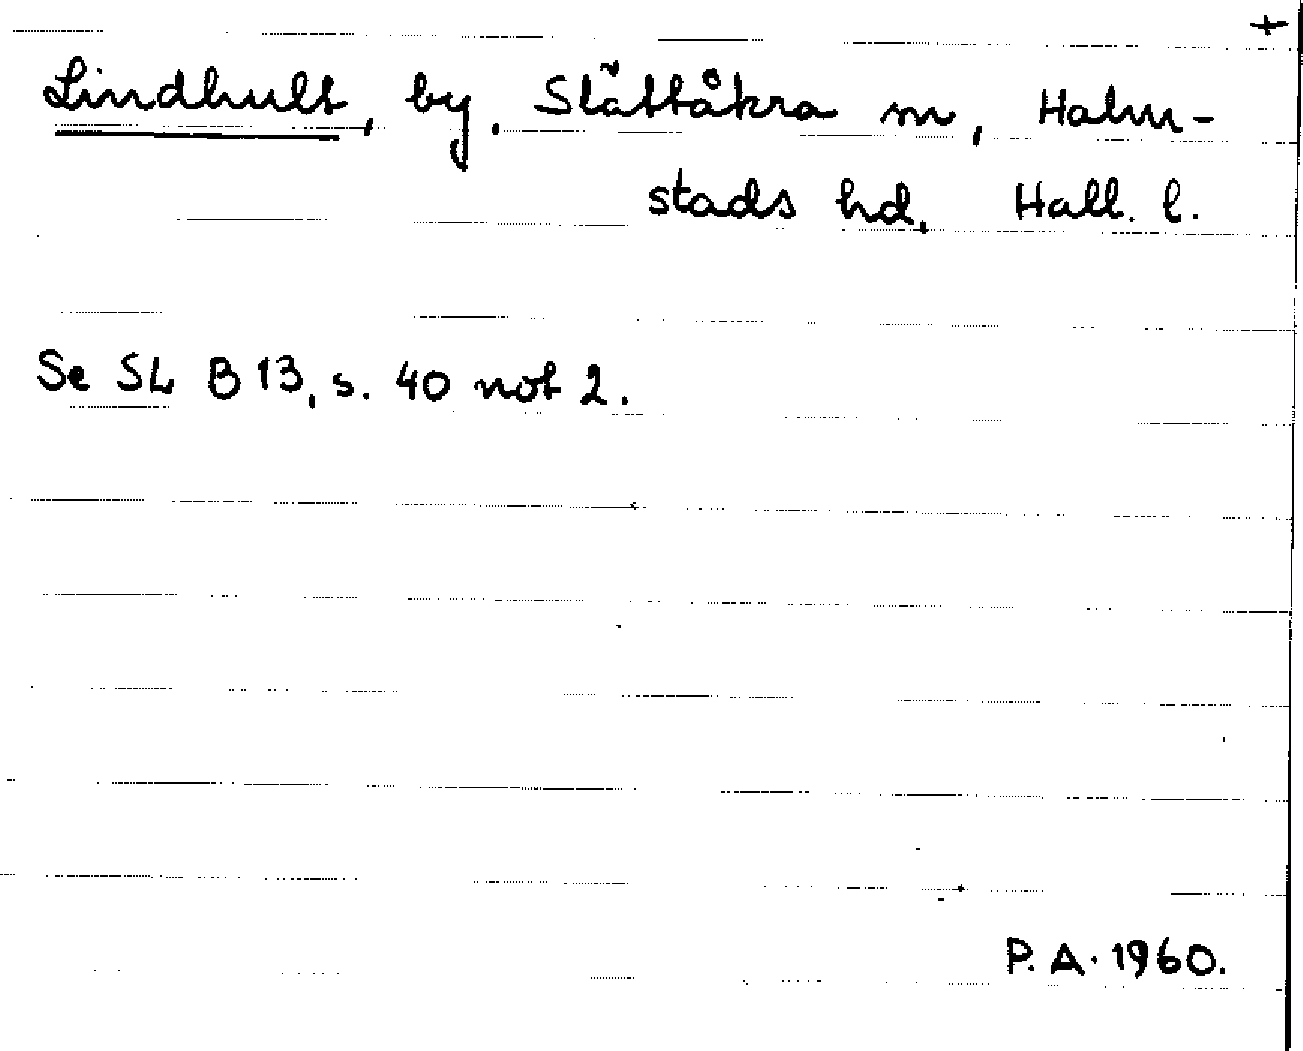 +
Lindhult, by, Slättåkra sn, Halm-
stads hd, Hall. l.
Se SL B 13, s. 40 not 2.
P. A. 1960.